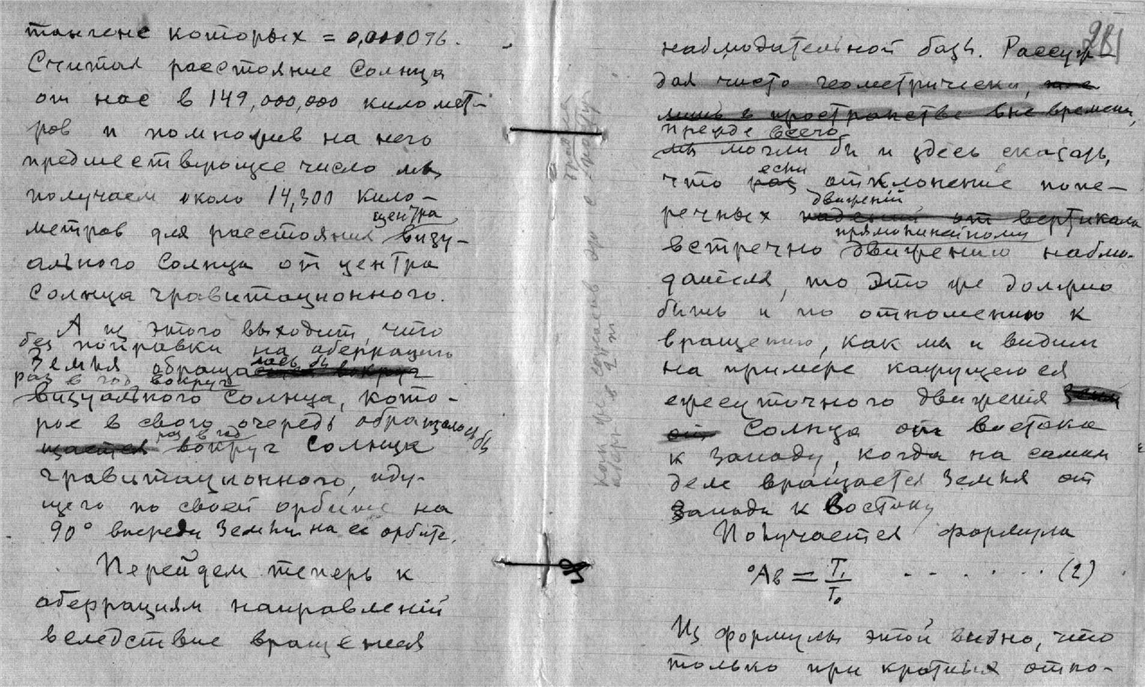 тангенс которых = 0,000096.
Считая расстояние Солнца
от нас в 149,000,000 километ-
ров и помножив на него
предшествующее число мы
получаем около 14,300 кило-
центра
метров для расстояния визу-
ального Солнца от центра
Солнца гравитационного.
А из этого выходит, что
без поправки на аберрацию
Земля обращалась бы
раз в год вокруг
визуального Солнца, кото-
рое в свою очередь обращалось бы
раз в год
вокруг Солнца
гравитационного, иду-
щего по своей орбите на
90° впереди Земли на ее орбите.
Перейдем теперь к
аберрациям направлений
вследствие вращения
281
наблюдательной базы. Рассуж
дая чисто геометрически,
лишь в пространстве вне времени,
прежде всего
мы могли бы и здесь сказать,
что если отклонение попе-
движений
речных падений от вертикали
прямолинейному
встречно движению наблю-
дателя, то это же должно
быть и по отношению к
вращению, как мы и видим
на примере кажущегося
ежесуточного движения
Солнца от востока
к западу, когда на самом
деле вращается Земля от
запада к востоку
Получается формула
°Aв = T₁/T₀ . . . . . . . (2)
Из формулы этой видно, что
только при кратных отно-